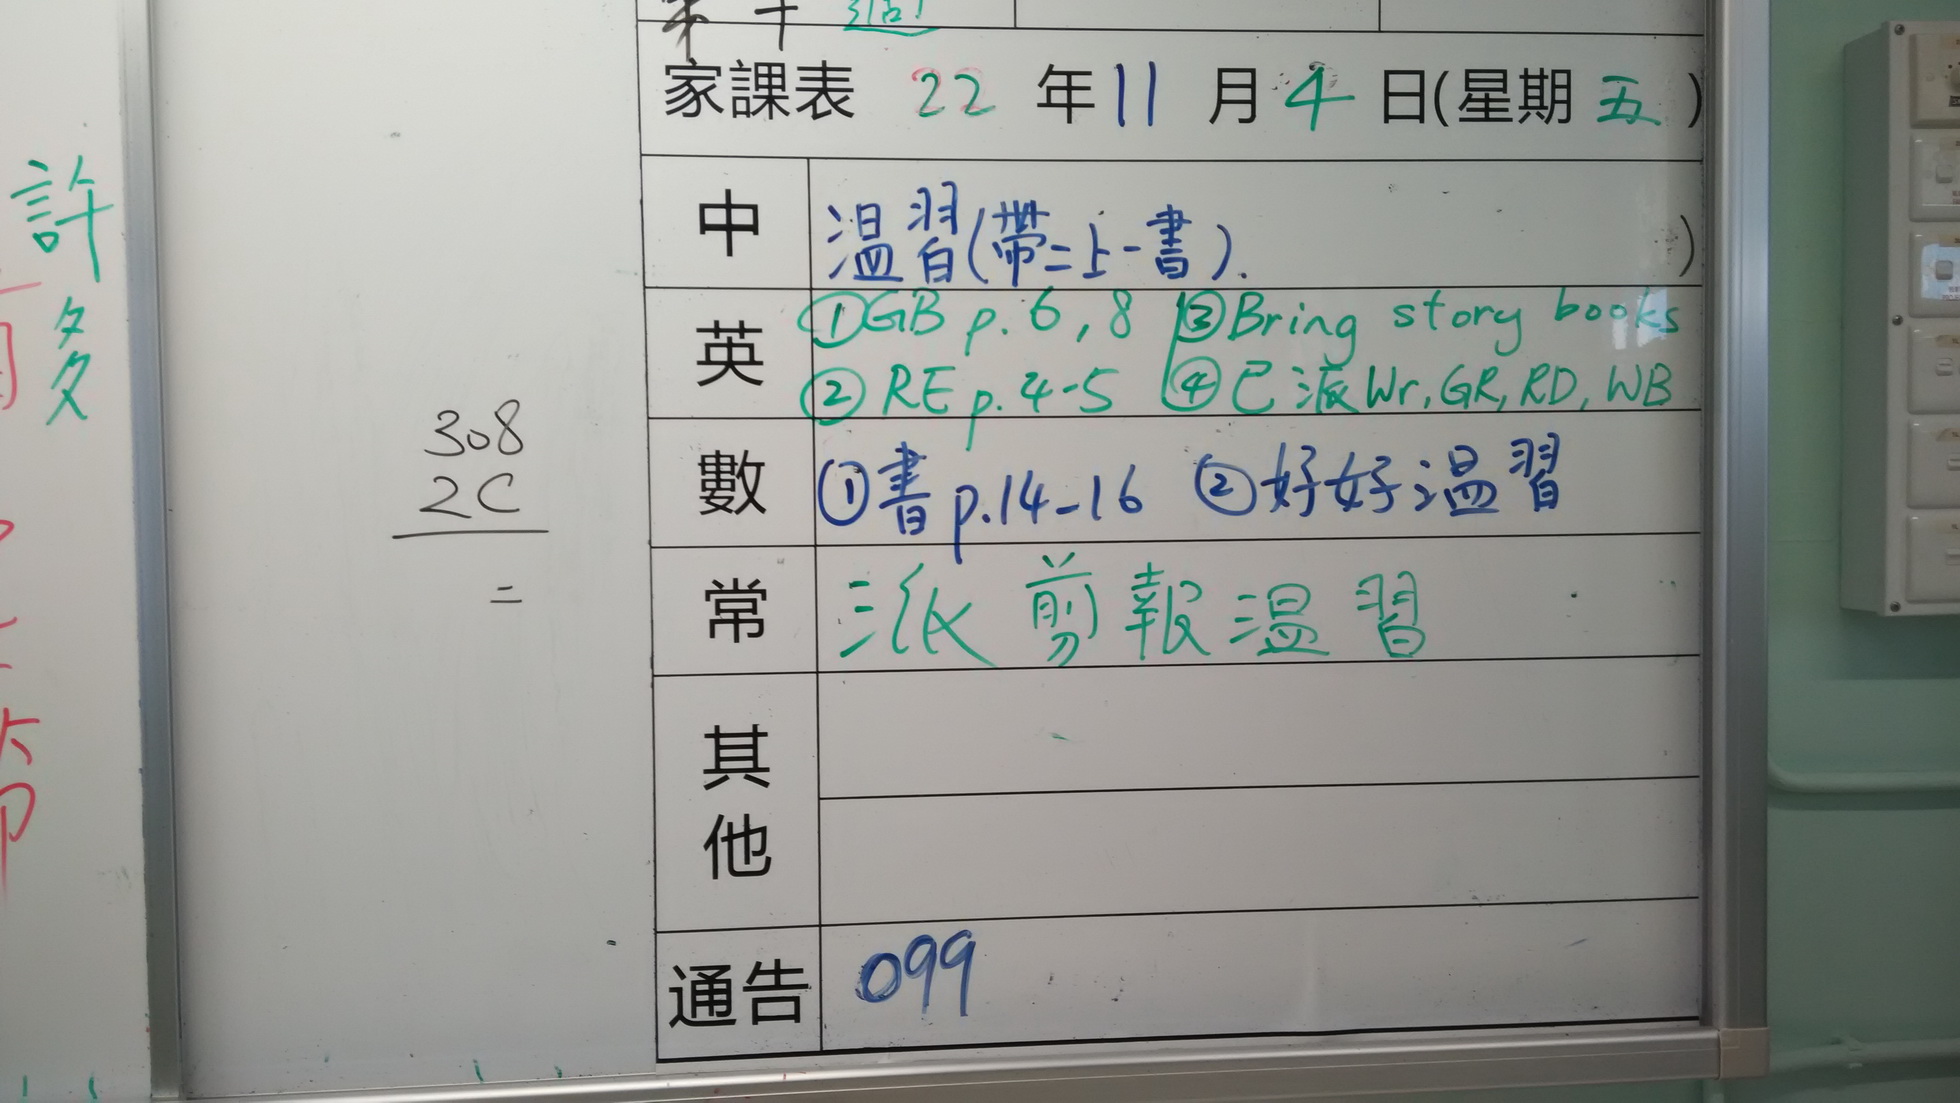 許多
308
2C
=
第十週
家課表 22 年 11 月 4 日(星期 五 )
中 溫習(帶二上一書). )
英 ①GB p. 6, 8 ③Bring story books
②RE p. 4-5 ④已派Wr, GR, RD, WB
數 ①書p.14-16 ②好好溫習
常 派剪報溫習
其他
通告 099